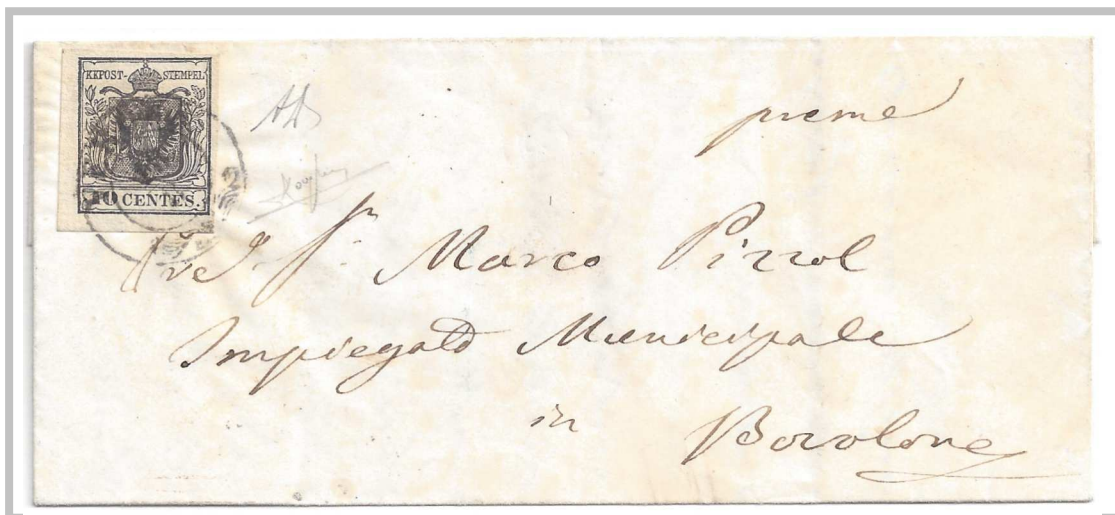 KKPOST-STEMPEL
10 CENTES.
preme
Marco Pizzol
Impiegato Municipale
in
Bovolone